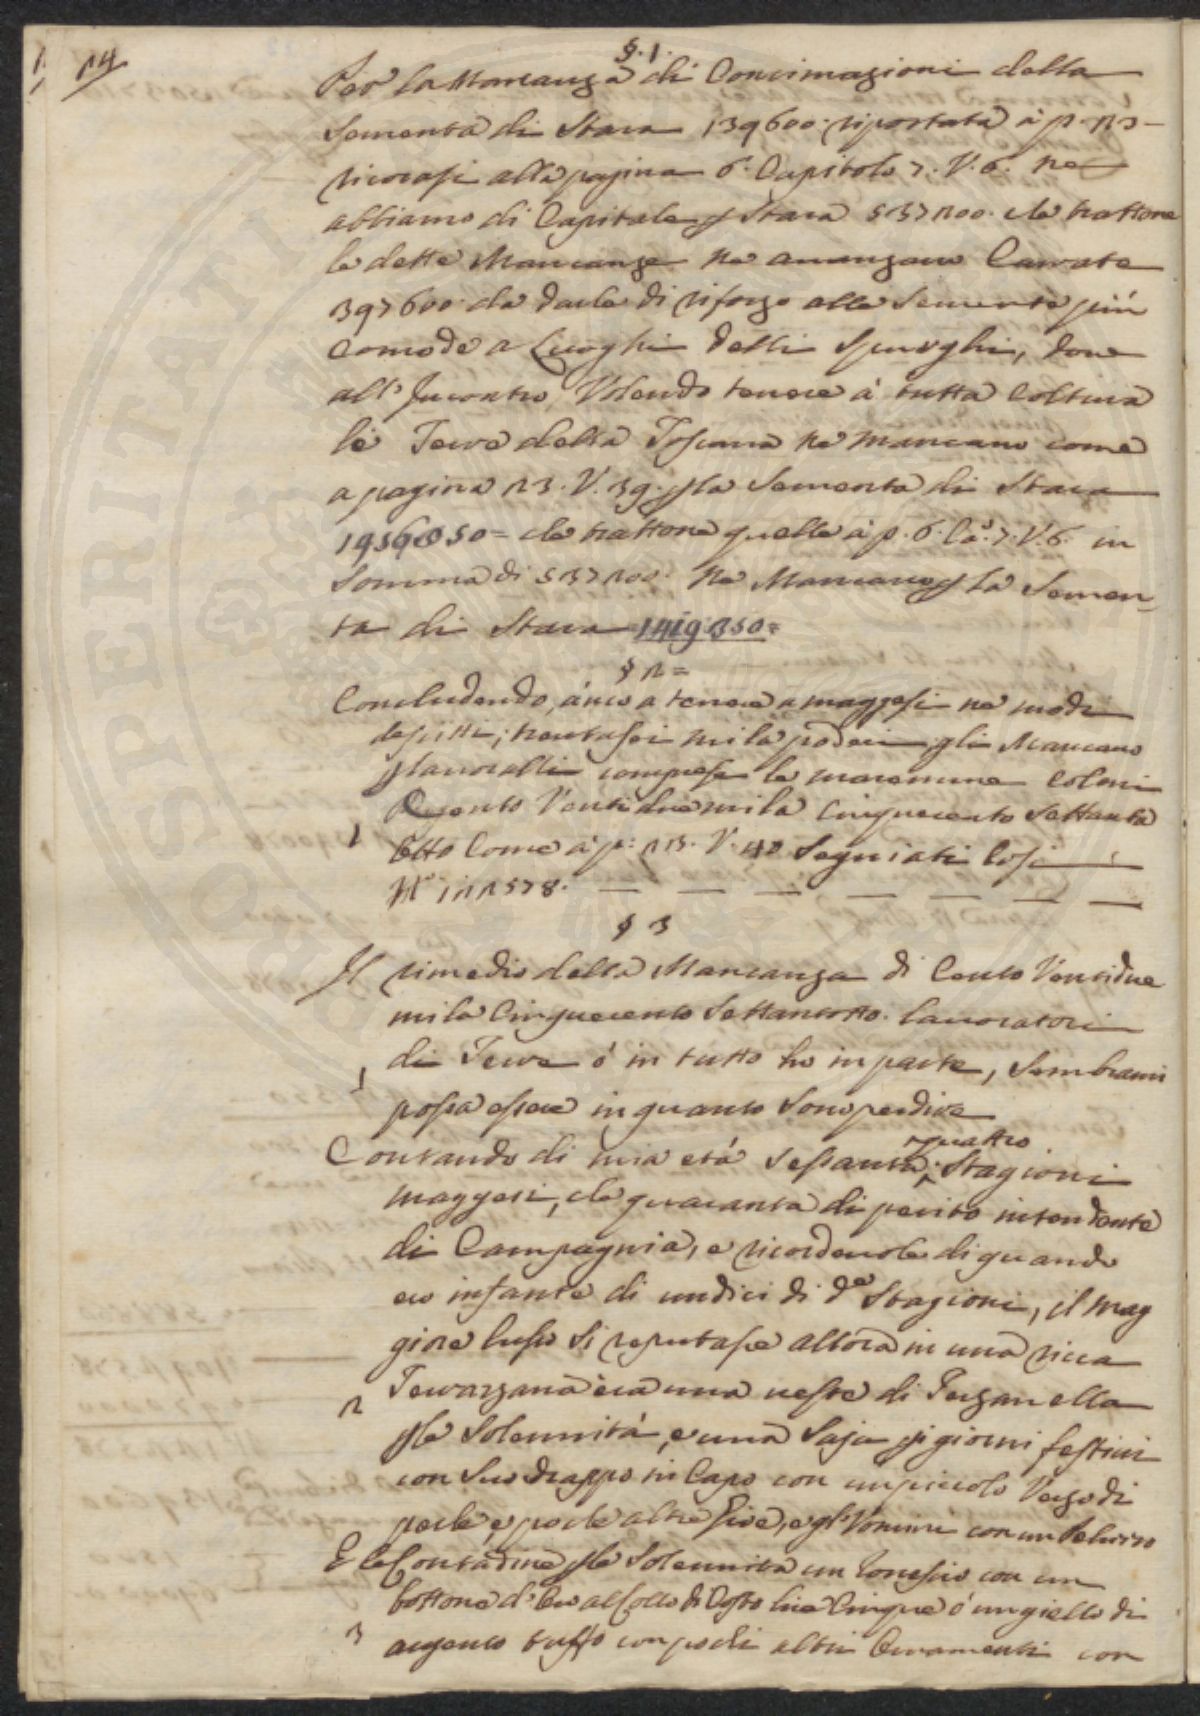 14
§. 1.
Per la Mancanza di Concimazioni della
Sementa di Stara 139600. riportata à p. 13
ricorasi alla pagina 6. Capitolo 7. V. 6. ne
abbiamo di Capitale p Stara 537200. che trattone
le dette Mancanze ne avanzano Carrate
397600. da darle di riforzo alle Sementa più
Comode a Luoghi delli Spurghi, dove
all'Incontro Volendo tenere à tutta Coltura
le Terre della Toscana ne mancano come
a pagina 13. V. 39. p la Sementa di Stara
1956050= che trattone quelle à p. 6. Cạ. 7. V. 6. in
Somma di 537200. ne Mancano p la Semen-
ta di Stara 1419350=
§ 2=
Concludendo, anco a tenere a maggesi ne modi
descritti; trentasei mila poderi gli Mancano
p lavoralli comprese le maremme Coloni
Cento Ventiduemila Cinquecento Settanta
1
Otto Come à p: 13. V. 40 Segniati Così
N.º 122578.
§ 3
Il rimedio della Mancanza di Cento Ventidue
mila Cinquecento Settantotto lavoratori
di Terre ó in tutto ho in parte, Sembrami
1
possa essere in quanto Sono per dire
Contando di mia età Sessanta quattro Stagioni
maggesi, che quaranta di perito intendente
di Campagnia, e ricordevole di quando
ero infante di undici di d.e Stagioni, il mag
giore lusso Si reputasse allora in una ricca
Terrazzana era una veste di Terzanella
2
p le Solennità, e una Saja p i giorni festivi
con Suo drappo in Capo con un piccolo Vezzo di
perle, e poche altre Gioe, e gl'Vomini con un
E le Contadine p le Solennità un con un
bottone d'Oro al Collo di Costo lire Cinque ó un giello di
3
argento tutto con pochi altri Ornamenti con